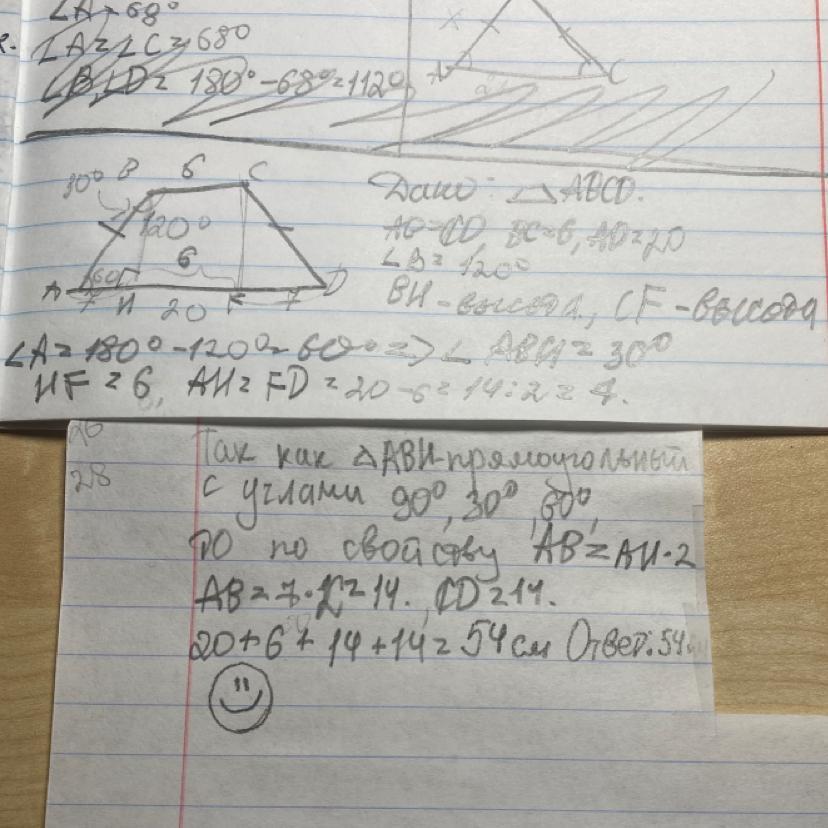 ∠A=68°
∠A=∠C=68°
∠B,∠D= 180°-68°=112°
A C
30° B 6 C
120°
6
60°
A 7 H 20 F 7 D
Дано: ABCD.
AB=CD, BC=6, AD=20
∠B=120°
BH-высота, CF-высота
∠A=180°-120°=60°=>∠ABH=30°
HF=6, AH=FD=20-6=14:2=7.
28
Так как △ABH-прямоугольный
с углами 90°, 30°, 60°,
то по свойству AB=AH·2
AB=7·2=14. CD=14.
20+6+14+14=54см Ответ:54